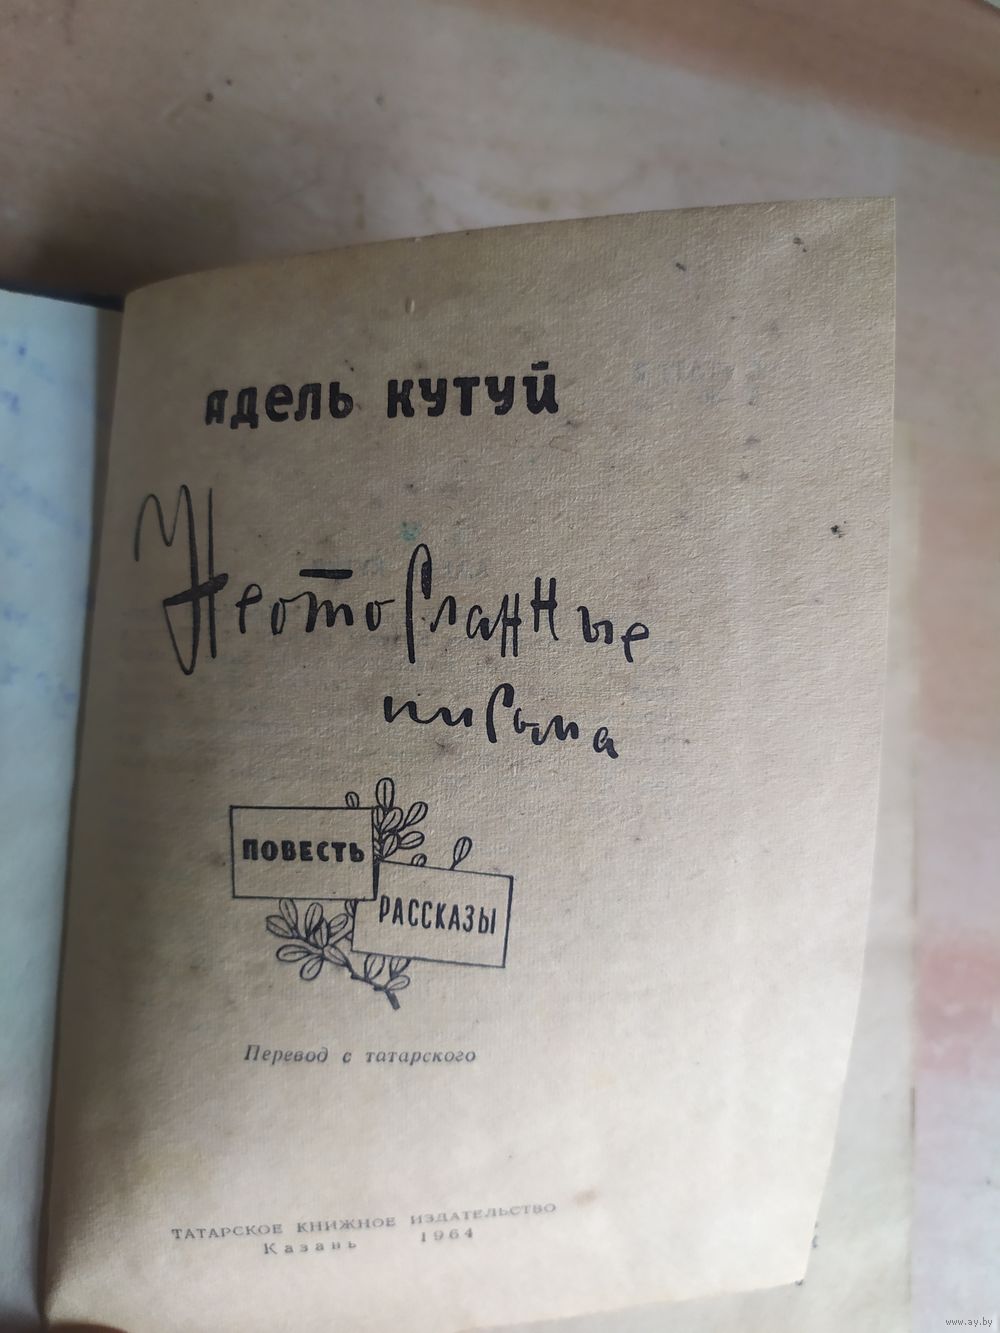 адель кутуй
Неотосланные
письма
ПОВЕСТЬ
РАССКАЗЫ
Перевод с татарского
ТАТАРСКОЕ КНИЖНОЕ ИЗДАТЕЛЬСТВО
Казань 1964
www.ay.by